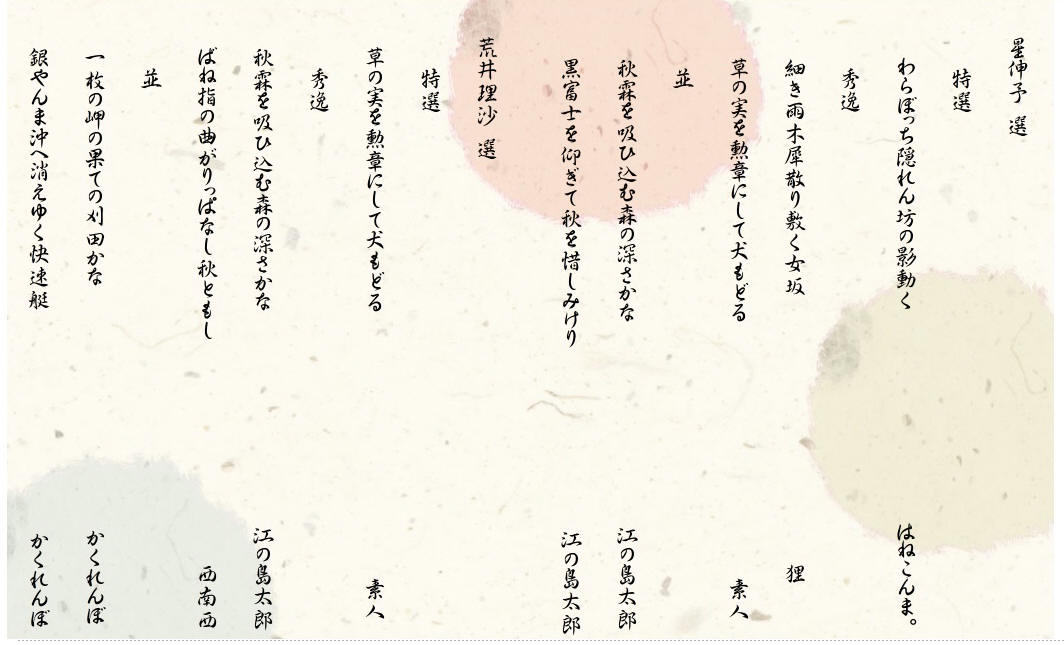 星伸予 選
特選
わらぼっち隠れん坊の影動く はねこんま。
秀逸
細き雨木犀散り敷く女坂 狸
草の実を勲章にして犬もどる 素人
並
秋霖を吸ひ込む森の深さかな 江の島太郎
黒富士を仰ぎて秋を惜しみけり 江の島太郎
荒井理沙 選
特選
草の実を勲章にして犬もどる 素人
秀逸
秋霖を吸ひ込む森の深さかな 江の島太郎
ばね指の曲がりっぱなし秋ともし 西南西
並
一枚の岬の果ての刈田かな かくれんぼ
銀やんま沖へ消えゆく快速艇 かくれんぼ